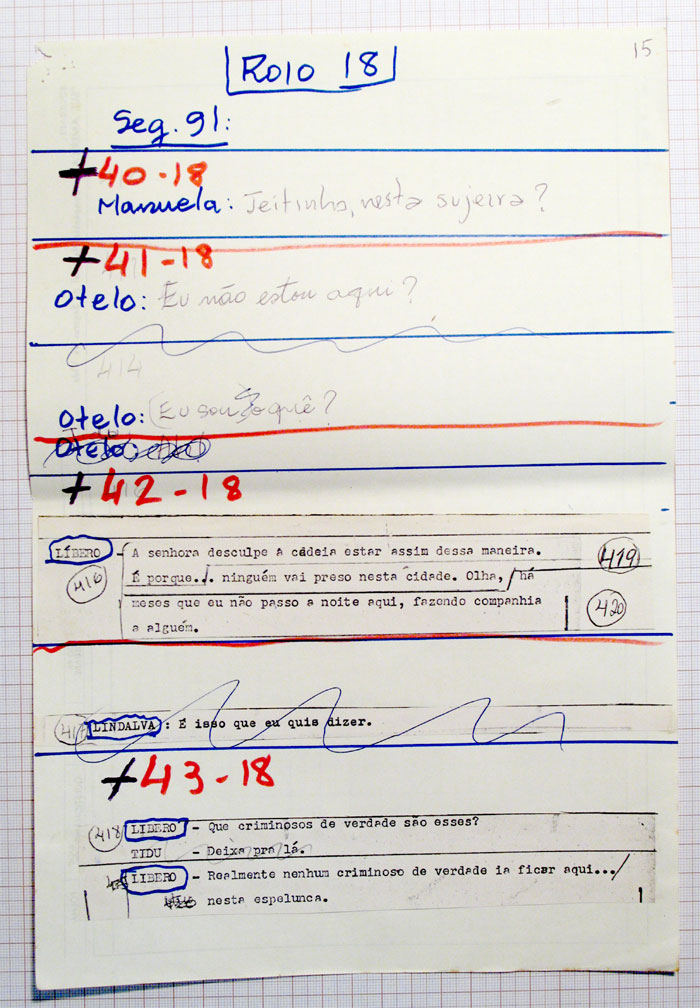 15
Rolo 18
Seg. 91:
+40-18
Manuela: Jeitinho, nesta sujeira?
+41-18
Otelo: Eu não estou aqui?
414
Otelo: Eu sou o quê?
Otelo:
+42-18
LÍBERO - A senhora desculpe a cadeia estar assim dessa maneira. 419
416 É porque... ninguém vai preso nesta cidade. Olha, há
meses que eu não passo a noite aqui, fazendo companhia 420
a alguém.
417 LINDALVA: É isso que eu quis dizer.
+43-18
418 LIBERO - Que criminosos de verdade são esses?
TIDU - Deixa pra lá.
LIBERO - Realmente nenhum criminoso de verdade ia ficar aqui...
nesta espelunca.